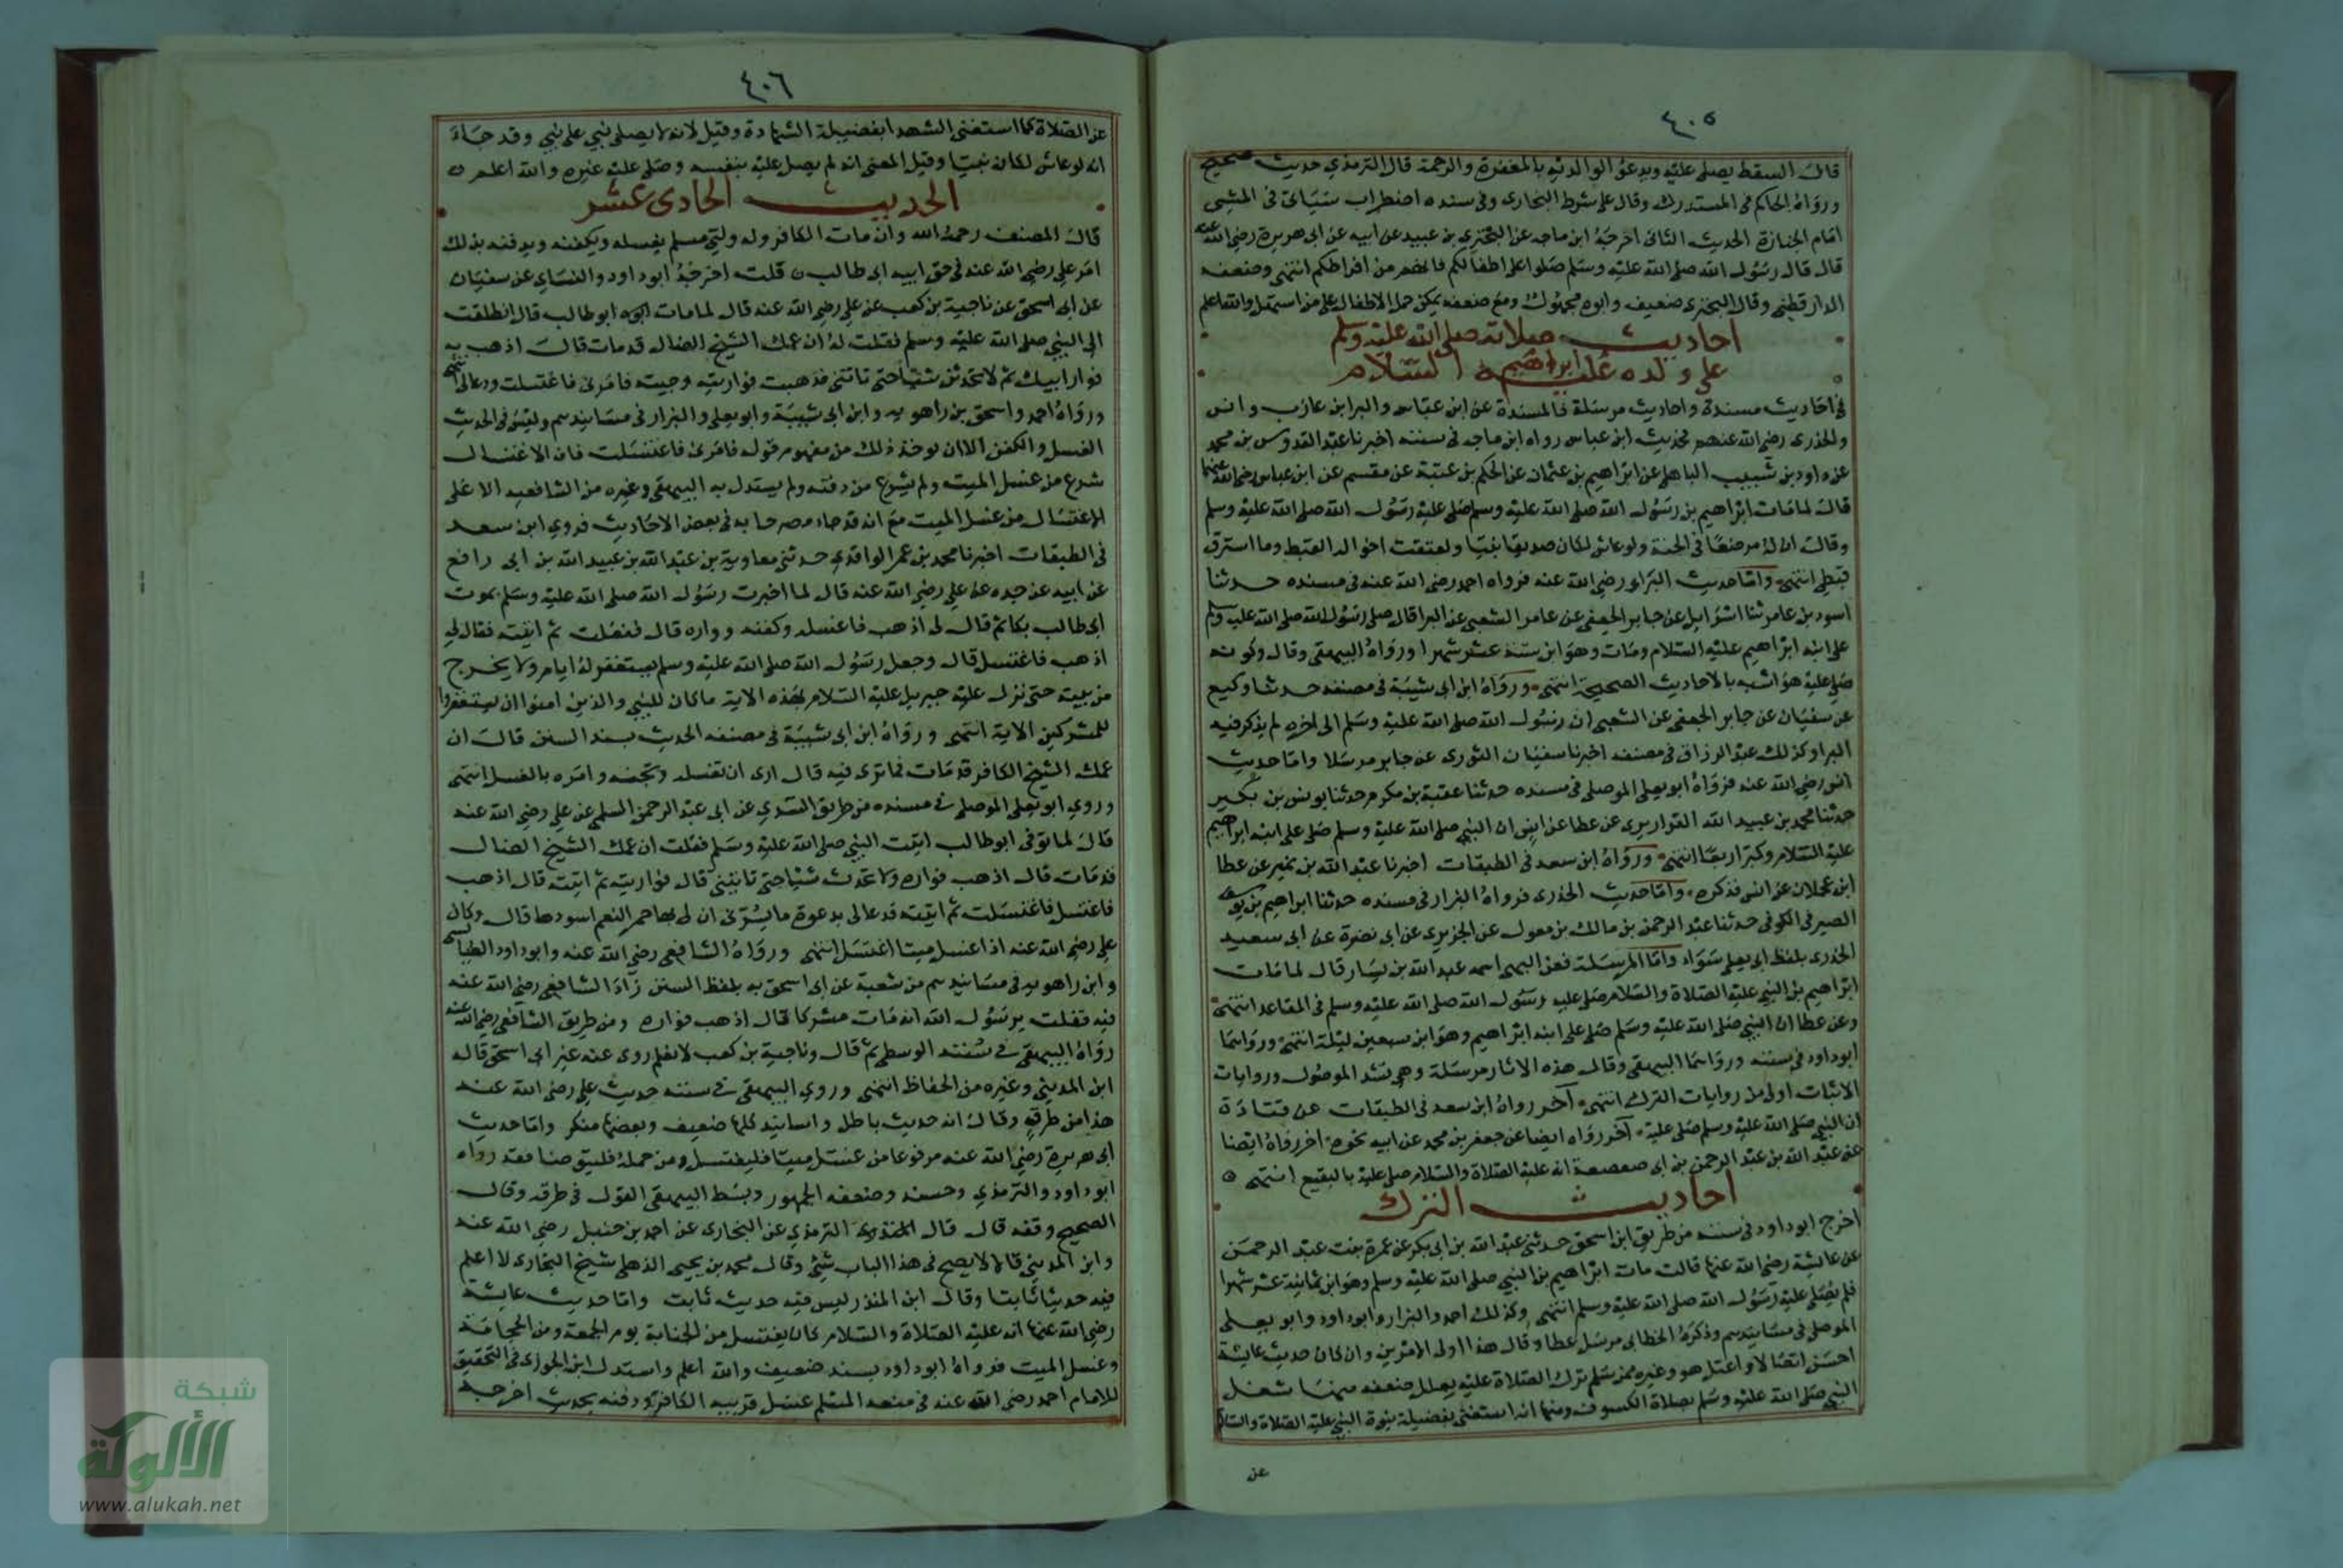 ٤٠٥
قال السقط يصلى عليه ويدعى لوالديه بالمغفرة والرحمة قال الترمذي حديث صحيح
ورواه الحاكم في المستدرك وقال على شرط البخارى وفى سنده اضطراب سيأتى فى المشى
امام الجنازة الحديث الثانى اخرجه ابن ماجه عن البخترى بن عبيد عن ابيه عن ابى هريرة رضى الله عنه
قال قال رسول الله صلى الله عليه وسلم صلوا على اطفالكم فانهم من افراطكم انتهى وضعفه
الدارقطنى وقال البخترى ضعيف وابوه مجهول ومع ضعفه يمكن حمل الاطفال على من استهل والله اعلم
احاديث صلاته صلى الله عليه وسلم
على ولده ابراهيم عليه السلام
فى احاديث مسندة واحاديث مرسلة فالمسندة عن ابن عباس والبرا بن عازب وانس
والخدرى رضى الله عنهم فحديث ابن عباس رواه ابن ماجه فى سننه اخبرنا عبد القدوس بن محمد
عن داود بن شبيب الباهلى عن ابراهيم بن عثمان عن الحكم بن عتبة عن مقسم عن ابن عباس رضى الله عنهما
قال لما مات ابراهيم بن رسول الله صلى الله عليه وسلم صلى عليه رسول الله صلى الله عليه وسلم
وقال ان له مرضعا فى الجنة ولو عاش لكان صديقا نبيا ولعتقت اخواله القبط وما استرق
قبطى انتهى واما حديث البراء رضى الله عنه فرواه احمد رضى الله عنه فى مسنده حدثنا
اسود بن عامر ثنا اسرائيل عن جابر الجعفى عن عامر الشعبى عن البرا قال صلى رسول الله صلى الله عليه وسلم
على ابنه ابراهيم عليه السلام ومات وهو ابن ستة عشر شهرا ورواه البيهقى وقال وكونه
صلى عليه هو اشبه بالاحاديث الصحيحة انتهى ورواه ابن ابى شيبة فى مصنفه حدثنا وكيع
عن سفيان عن جابر الجعفى عن الشعبى ان رسول الله صلى الله عليه وسلم الى اخره لم يذكر فيه
البرا وكذلك عبد الرزاق فى مصنفه اخبرنا سفيان الثورى عن جابر مرسلا واما حديث
انس رضى الله عنه فرواه ابو يعلى الموصلى فى مسنده حدثنا عقبة بن مكرم حدثنا يونس بن بكير
حدثنا محمد بن عبيد الله القواريرى عن عطا عن انس ان النبى صلى الله عليه وسلم صلى على ابنه ابراهيم
عليه السلام وكبر اربعا انتهى ورواه ابن سعد فى الطبقات اخبرنا عبد الله بن نمير عن عطا
ابن عجلان عن انس فذكره واما حديث الخدرى فرواه البزار فى مسنده حدثنا ابراهيم بن يوسف
الصيرفى الكوفى حدثنا عبد الرحمن بن مالك بن مغول عن الجريرى عن ابى نضرة عن ابى سعيد
الخدرى بلفظ ابى يعلى سواء واما المرسلة فعن البهى اسمه عبد الله بن يسار قال لما مات
ابراهيم بن النبى عليه الصلاة والسلام صلى عليه رسول الله صلى الله عليه وسلم فى المقاعد انتهى
وعن عطا ان النبى صلى الله عليه وسلم صلى على ابنه ابراهيم وهو ابن سبعين ليلة انتهى ورواهما
ابو داود فى سننه ورواهما البيهقى وقال هذه الاثار مرسلة وهى تشد الموصول وروايات
الاثبات اولى من روايات الترك انتهى آخر رواه ابن سعد فى الطبقات عن قتادة
ان النبى صلى الله عليه وسلم صلى عليه آخر رواه ايضا عن جعفر بن محمد عن ابيه نحوه آخر رواه ايضا
عن عبد الله بن عبد الرحمن بن ابى صعصعة انه عليه الصلاة والسلام صلى عليه بالبقيع انتهى
احاديث الترك
اخرج ابو داود فى سننه من طريق ابن اسحق حدثنى عبد الله بن ابى بكر عن عمرة بنت عبد الرحمن
عن عائشة رضى الله عنها قالت مات ابراهيم بن النبى صلى الله عليه وسلم وهو ابن ثمانية عشر شهرا
فلم يصلى عليه رسول الله صلى الله عليه وسلم انتهى وكذلك احمد والبزار وابو داود وابو يعلى
الموصلى فى مسانيدهم وذكره الخطابى مرسل عطا وقال هذا اولى الامرين وان كان حديث عايشة
احسن اتصالا واعتل هو وغيره ممن سلم ترك الصلاة عليه بعلل ضعفه منها شغل
النبى صلى الله عليه وسلم بصلاة الكسوف ومنها انه استغنى بفضيلة بنوة النبى عليه الصلاة والسلام
عن
٤٠٦
عن الصلاة كما استغنى الشهدا بفضيلة الشهادة وقيل لانه لا يصلى نبى على نبى وقد جاء
انه لو عاش لكان نبيا وقيل المعنى انه لم يصل عليه بنفسه وصلى عليه غيره والله اعلم
الحديث الحادى عشر
قال المصنف رحمه الله وان مات الكافر وله ولى مسلم يغسله ويكفنه ويدفنه بذلك
امر على رضى الله عنه فى حق ابيه ابى طالب قلت اخرجه ابو داود والنساى عن سفيان
عن ابى اسحق عن ناجية بن كعب عن على رضى الله عنه قال لما مات ابوه ابو طالب قال انطلقت
الى النبى صلى الله عليه وسلم فقلت له ان عمك الشيخ الضال قد مات قال اذهب به
فوار ابيك ثم لا تحدثن شيئا حتى تاتنى فذهبت فواريته وجيته فامرنى فاغتسلت ودعالى انتهى
ورواه احمد واسحق بن راهويه وابن ابى شيبة وابو يعلى والبزار فى مسانيدهم وليس فى الحديث
الغسل والكفن الا ان يوخذ ذلك من مفهوم قوله فامرنى فاغتسلت فان الاغتسال
شرع من غسل الميت ولم يشرع من دفنه ولم يستدل به البيهقى وغيره من الشافعيه الا على
الاغتسال من غسل الميت مع انه قد جاء مصرحا به فى بعض الاحاديث فروي ابن سعد
فى الطبقات اخبرنا محمد بن عمر الواقدي حدثنى معاوية بن عبد الله بن عبيد الله بن ابى رافع
عن ابيه عن جده عن على رضى الله عنه قال لما اخبرت رسول الله صلى الله عليه وسلم بموت
ابى طالب بكا ثم قال لى اذهب فاغسله وكفنه وواره قال ففعلت ثم اتيته فقال لى
اذهب فاغتسل قال وجعل رسول الله صلى الله عليه وسلم يستغفر له ايام ولا يخرج
من بيته حتى نزل عليه جبريل عليه السلام بهذه الاية ما كان للنبى والذين امنوا ان يستغفروا
للمشركين الاية انتهى ورواه ابن ابى شيبة فى مصنفه الحديث بسند السنن قال ان
عمك الشيخ الكافر قد مات فما ترى فيه قال ارى ان تغسله وتجنه وامره بالغسل انتهى
وروي ابو يعلى الموصلى فى مسنده من طريق السدي عن ابى عبد الرحمن السلمى عن على رضى الله عنه
قال لما توفى ابو طالب اتيت النبى صلى الله عليه وسلم فقلت ان عمك الشيخ الضال
قد مات قال اذهب فواره ولا تحدث شيئا حتى تاتينى قال فواريته ثم اتيته قال اذهب
فاغتسل فاغتسلت ثم اتيته فدعالى بدعوة ما يسرنى ان لى بها حمر النعم اسودها قال وكان
على رضى الله عنه اذا اغسل ميتا اغتسل انتهى ورواه الشافعى رضى الله عنه وابو داود الطيالسى
وابن راهويه فى مسانيدهم من شعبة عن ابى اسحق به بلفظ السنن زاد الشافعى رضى الله عنه
فيه فقلت يرسول الله انه مات مشركا قال اذهب فواره ومن طريق الشافعى رضى الله عنه
رواه البيهقى فى سننه الوسطى ثم قال وناجية بن كعب لا نعلم روى عنه غير ابى اسحق قاله
ابن المدينى وغيره من الحفاظ انتهى وروي البيهقى فى سننه حديث على رضى الله عنه
هذا من طرق وقال انه حديث باطل واسانيده كلها ضعيف وبعضها منكر واما حديث
ابى هريرة رضى الله عنه مرفوعا من غسل ميتا فليغتسل ومن حمله فليتوضا فقد رواه
ابو داود والترمذي وحسنه وضعفه الجمهور وبسط البيهقى القول فى طرقه وقال
الصحيح وقفه قال قال المنذرى الترمذي عن البخارى عن احمد بن حنبل رضى الله عنه
وابن المدينى قالا لا يصح فى هذا الباب شئ وقال محمد بن يحيى الذهلى شيخ البخارى لا اعلم
فيه حديثا ثابتا وقال ابن المنذر ليس فيه حديث ثابت واما حديث عايشة
رضى الله عنها انه عليه الصلاة والسلام كان يغتسل من الجنابة يوم الجمعة ومن الحجامة
وغسل الميت فرواه ابو داود بسند ضعيف والله اعلم واستدل ابن الجوزى فى التحقيق
للامام احمد رضى الله عنه فى منعه المسلم غسل قريبه الكافر ودفنه بحديث اخرجه
شبكة
الألوكة
www.alukah.net